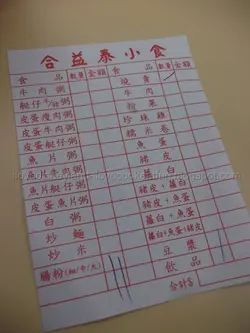 合益泰小食
食品 數量 金額 食品 數量 金額
牛肉粥 燒賣
艇仔粥 牛肉
皮蛋瘦肉粥
皮蛋牛肉粥 珍珠雞
皮蛋艇仔粥 糯米卷
魚片粥 魚蛋
魚片牛肉粥 豬皮
魚片艇仔粥 豬皮+蘿白
皮蛋魚片粥 豬皮+魚蛋
白粥 蘿白+魚蛋
炒麵 蘿白+魚蛋+豬皮
炒米 豆漿
腸粉(蝦/牛/叉) 飲品
合計$